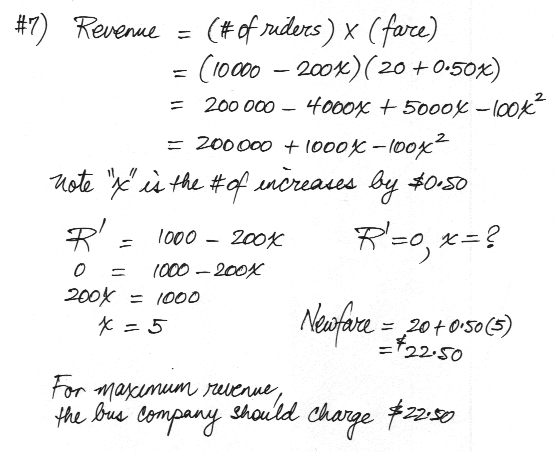 #7) Revenue = (# of riders) x (fare)
= (10000 - 200x)(20 + 0.50x)
= 200 000 - 4000x + 5000x - 100x²
= 200000 + 1000x - 100x²
note "x" is the # of increases by $0.50
R' = 1000 - 200x R'=0, x=?
0 = 1000 - 200x
200x = 1000
x = 5 New fare = 20 + 0.50(5)
= $22.50
For maximum revenue,
the bus company should charge $22.50